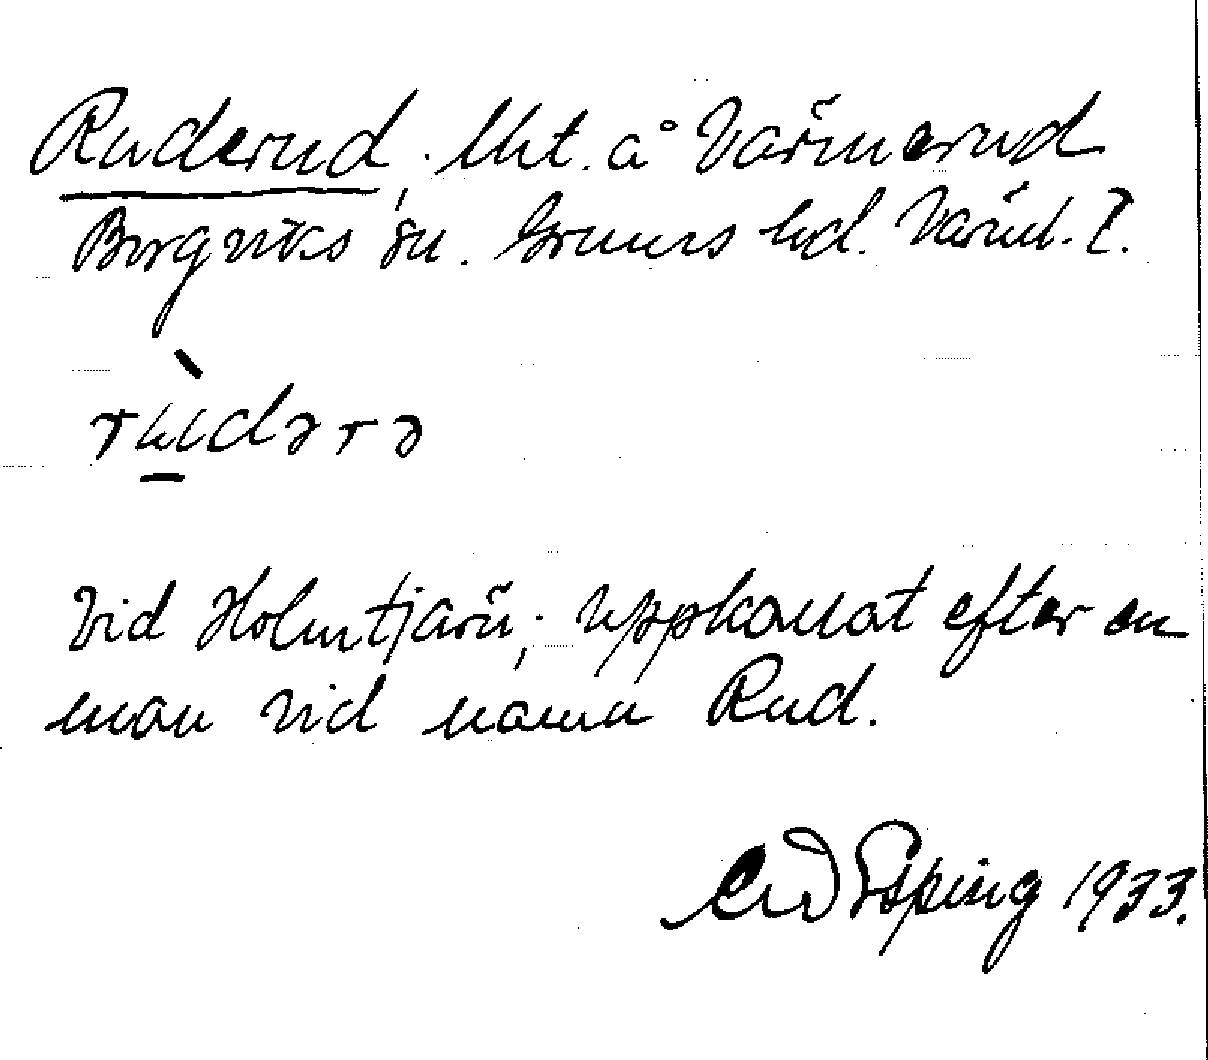 Ruderud, lht. å Värmerud
Borgviks sn. Grums hd. Värml. l.
rùdərə
Vid Holmtjärn; uppkallat efter en
man vid namn Rud.
Esping 1933.